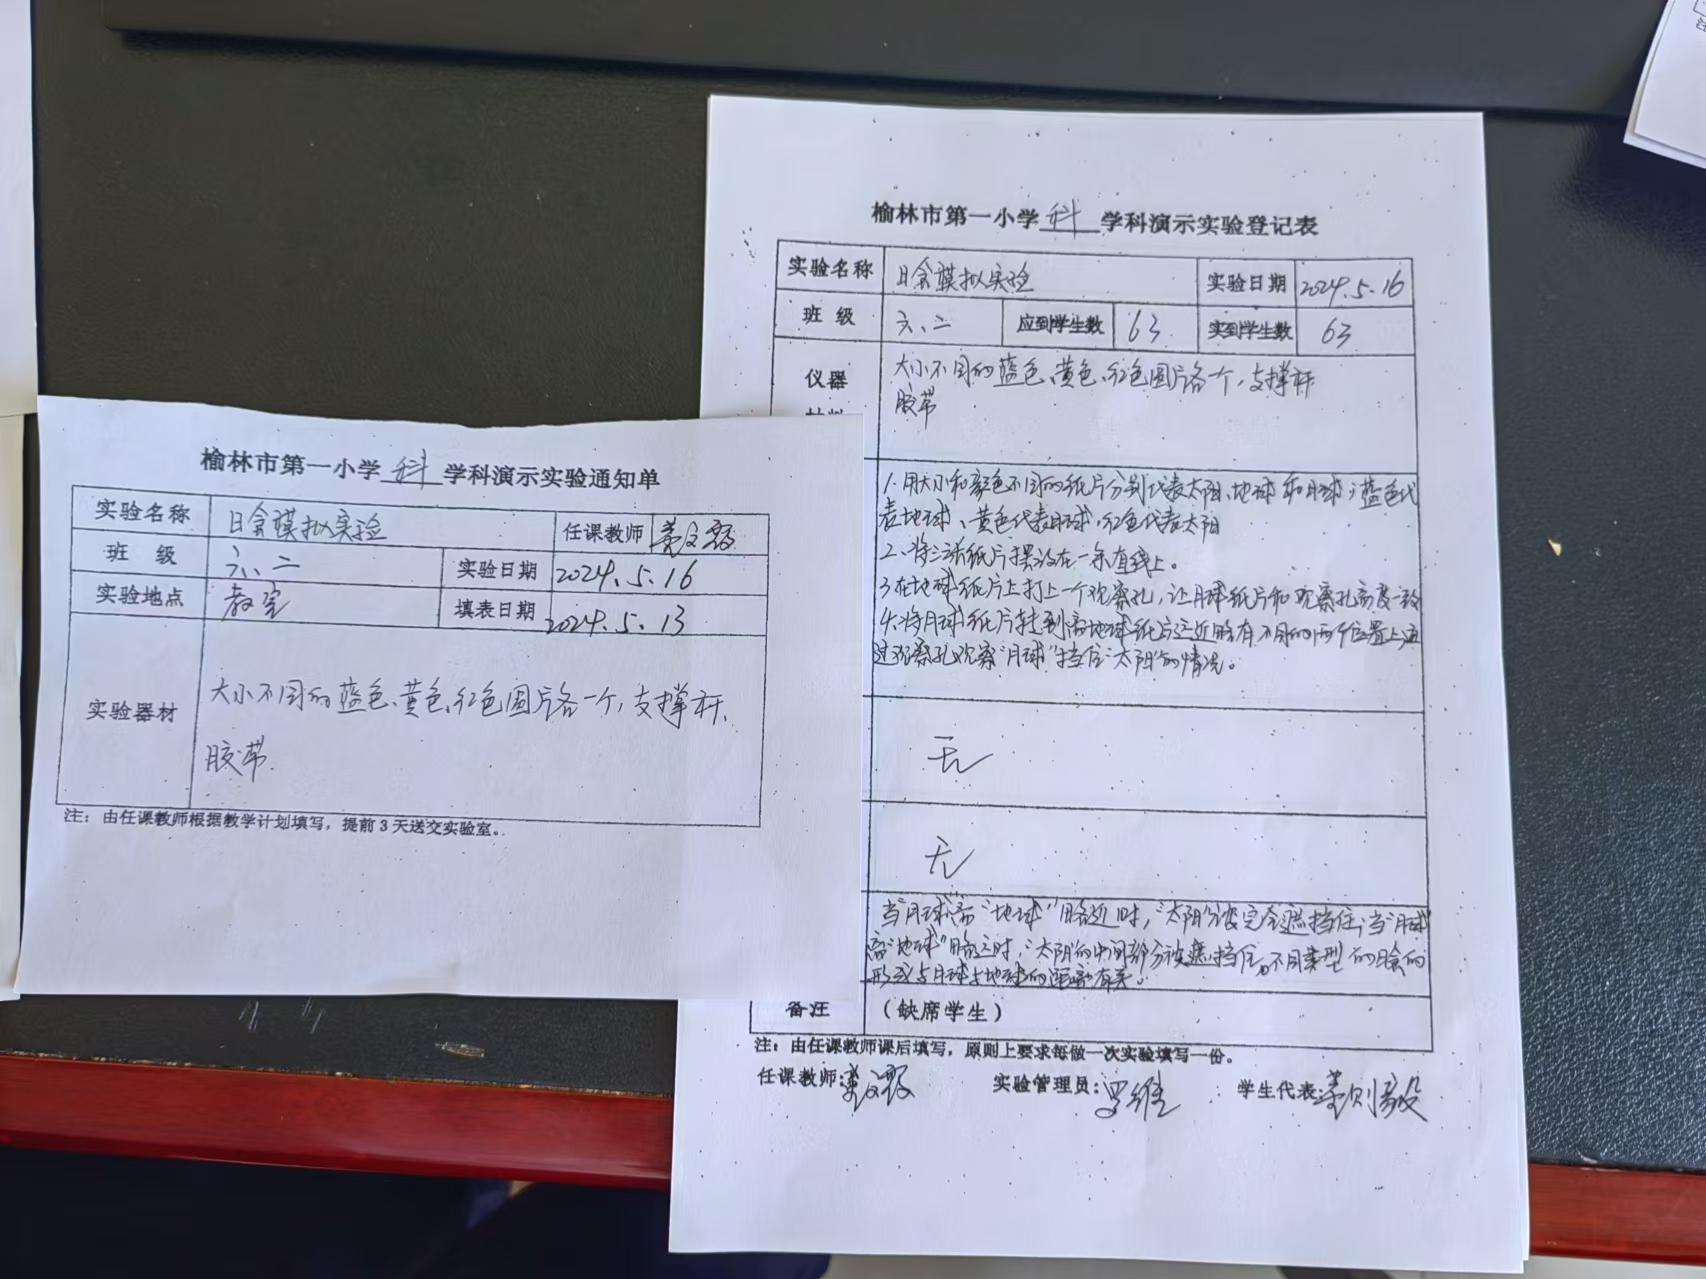 榆林市第一小学科学科演示实验通知单
实验名称 日食模拟实验 任课教师
班级 六、二 实验日期 2024.5.16
实验地点 教室 填表日期 2024.5.13
实验器材 大小不同的蓝色、黄色、红色圆片各一个,支撑杆、
胶带
注:由任课教师根据教学计划填写,提前3天送交实验室。
榆林市第一小学科学科演示实验登记表
实验名称 日食模拟实验 实验日期 2024.5.16
班级 六、二 应到学生数 63 实到学生数 63
仪器 大小不同的蓝色、黄色、红色圆片各一个,支撑杆
胶带
1.用大小和颜色不同的纸片分别代表太阳、地球和月球;蓝色代
表地球、黄色代表月球,红色代表太阳
2.将三张纸片摆放在一条直线上。
3.在地球纸片上打上一个观察孔,让月球纸片和观察孔高度一致
4.将月球纸片转到离地球纸片远近略有不同的两个位置上,通
过观察孔观察“月球”挡住“太阳”的情况。
无
无
当“月球”离“地球”略近时,“太阳”被完全遮挡住;当“月球”
离“地球”略远时,“太阳”的中间部分被遮挡住。不同类型的日食的
形成与月球与地球的距离有关。
备注 (缺席学生)
注:由任课教师课后填写,原则上要求每做一次实验填写一份。
任课教师: 实验管理员:罗维 学生代表: